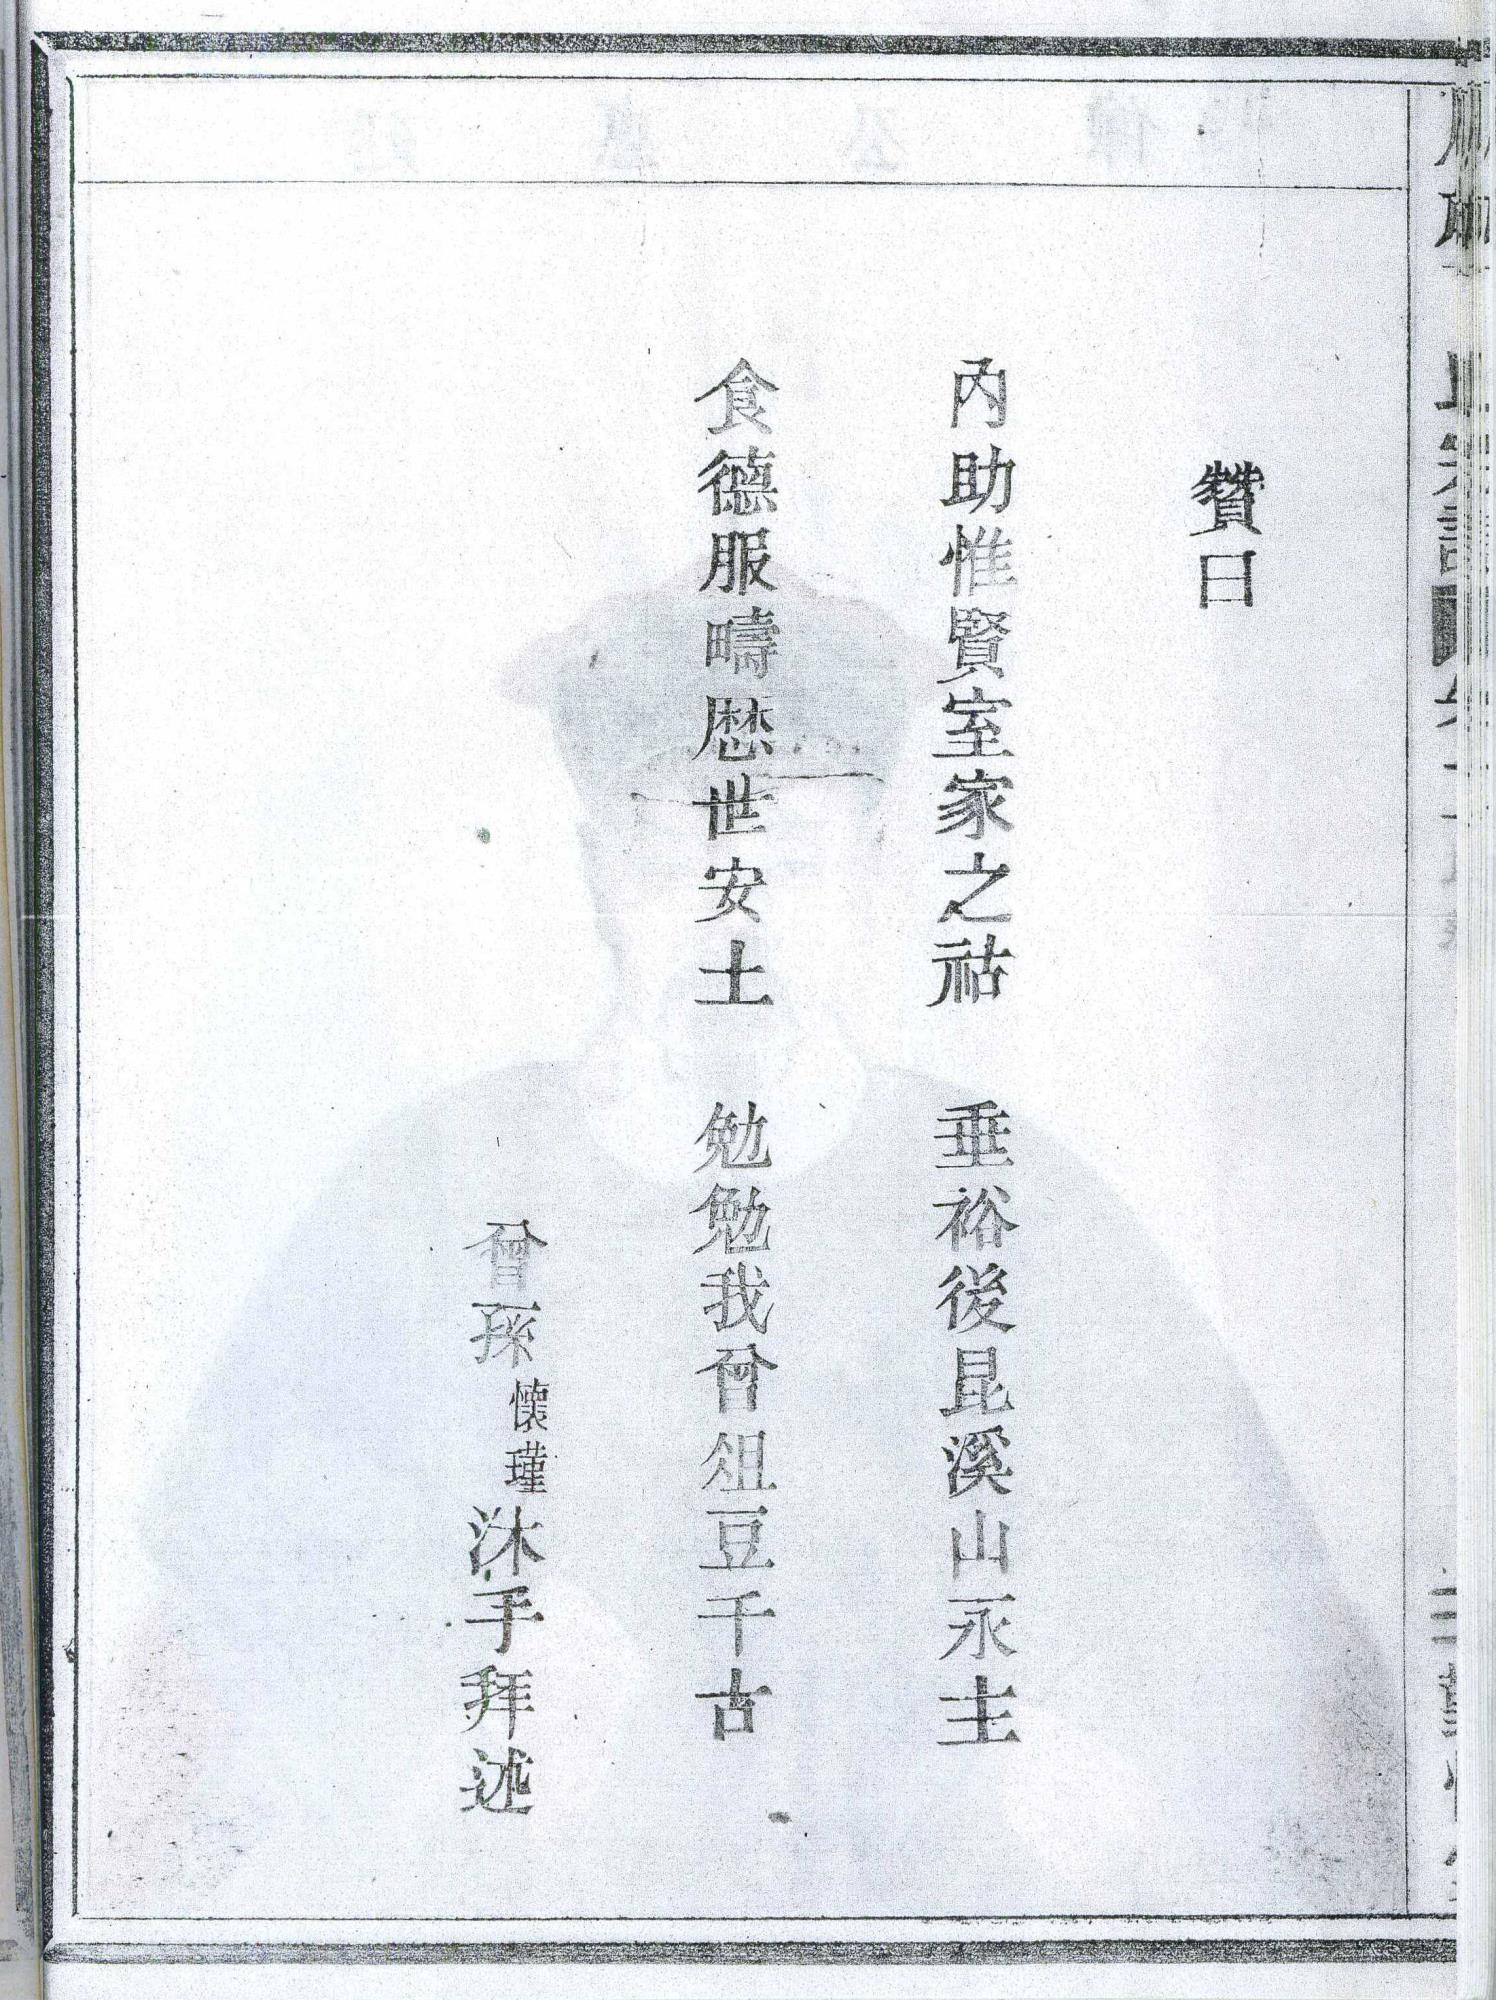 贊曰
內助惟賢室家之祜　垂裕後昆溪山永主
食德服疇歷世安土　勉勉我曾俎豆千古
曾孫懷瑾沐手拜述